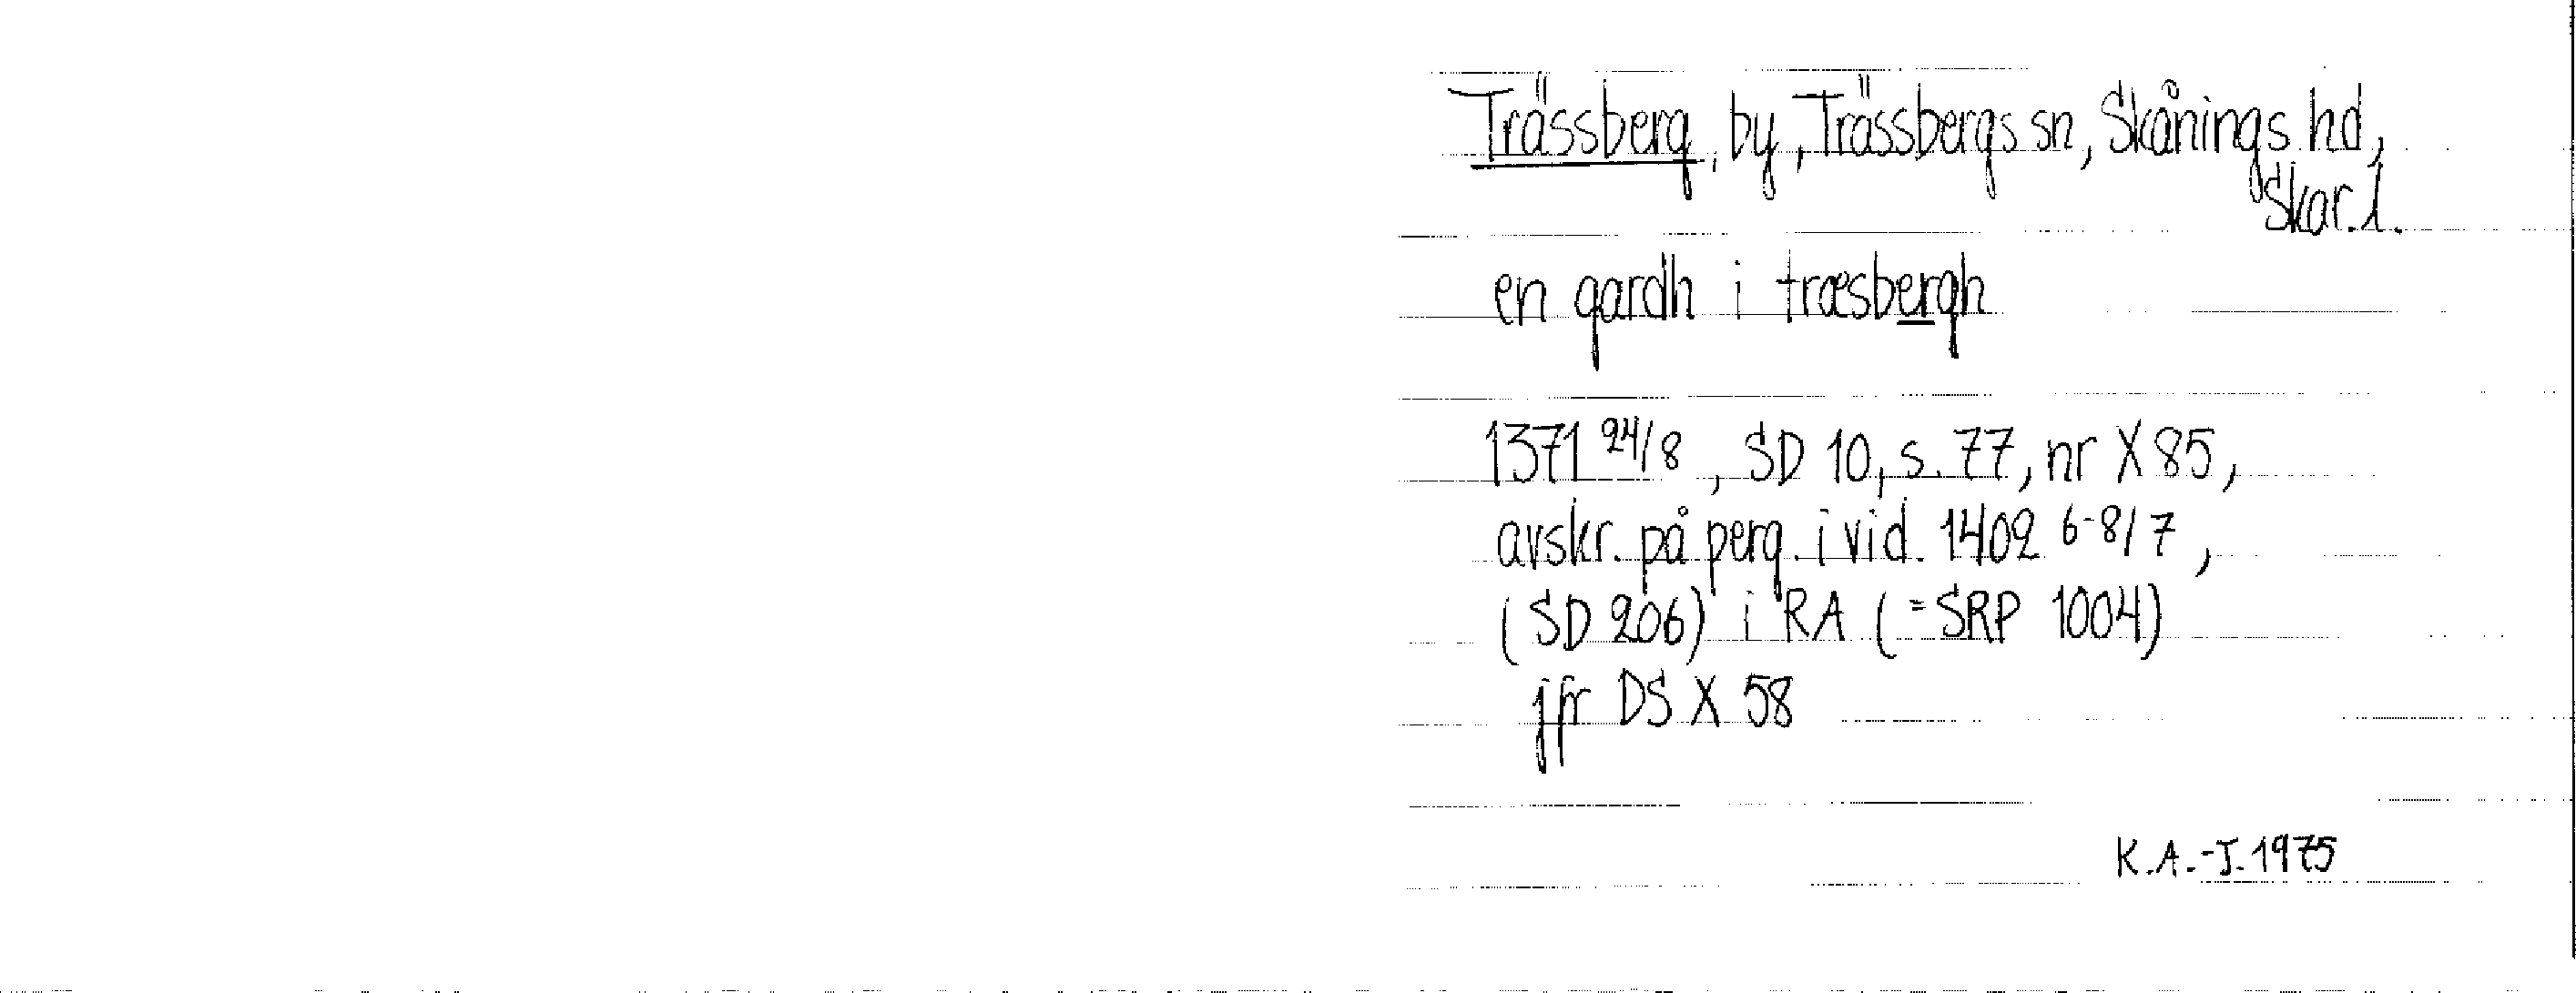 Trässberg, by, Trässbergs sn, Skånings hd,
Skar. l.
en gardh i træsbergh
1371 24/8, SD 10, s. 77, nr X 85,
avskr. på perg. i vid. 1402 6-8/7,
(SD 206) i RA (=SRP 1004)
jfr DS X 58
K.A.-J. 1975